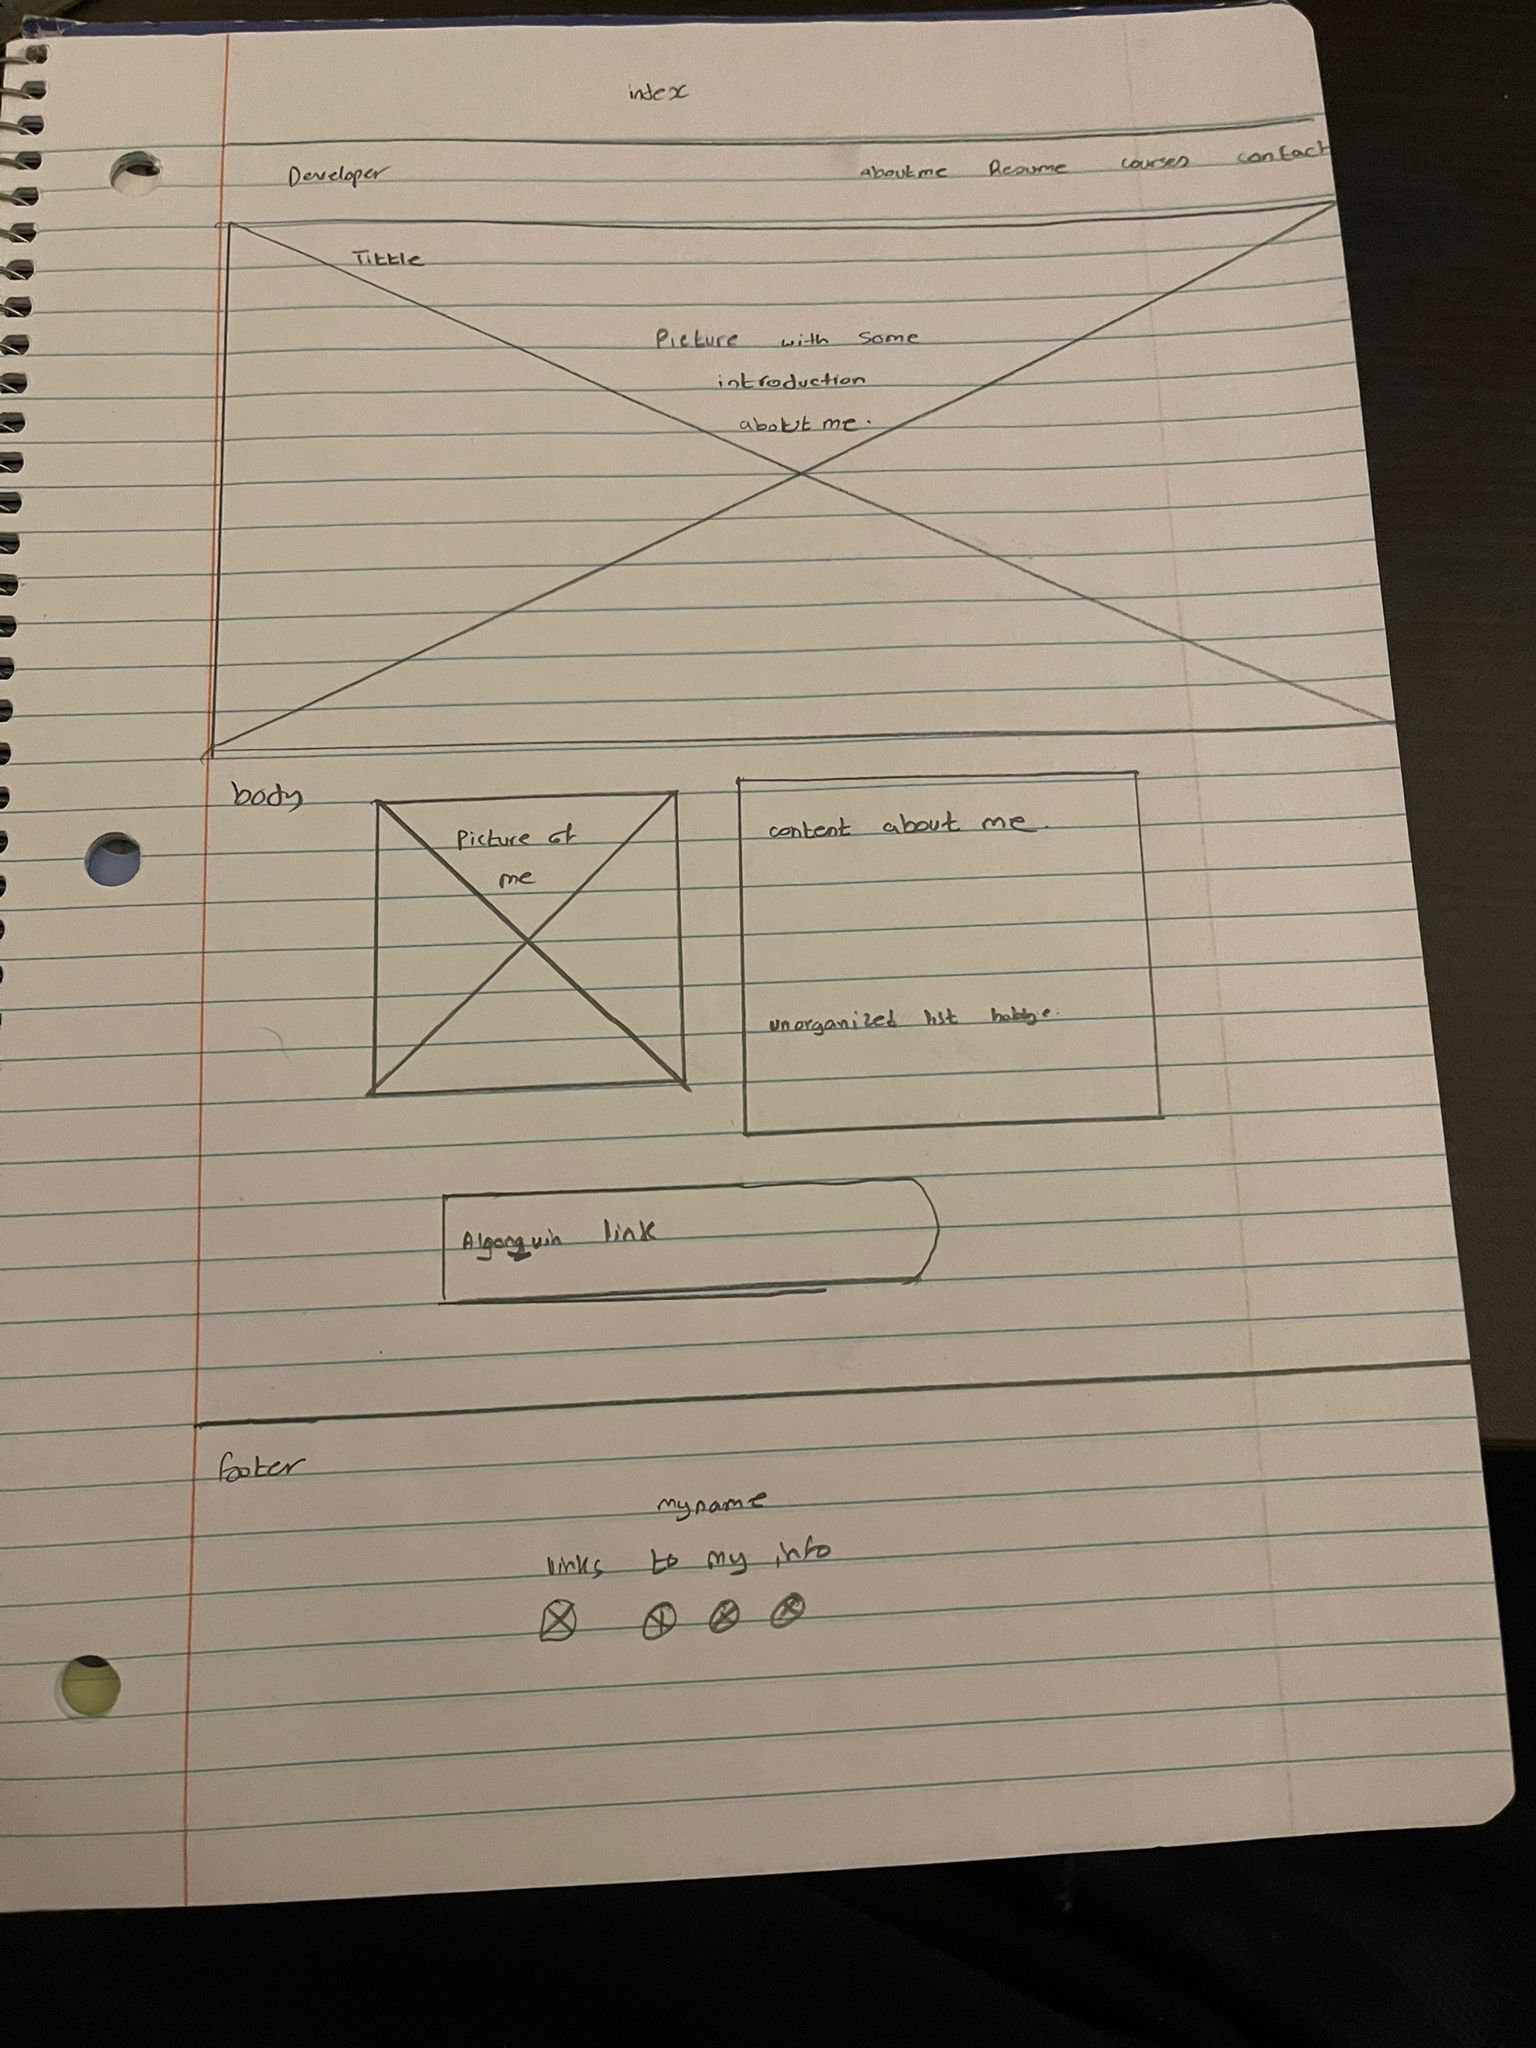 index
Developer aboutme Resume courses contact
Tittle
Picture with some
introduction
about me.
body
Picture of
me
content about me.
unorganized list
Algonquin link
footer
myname
links to my info